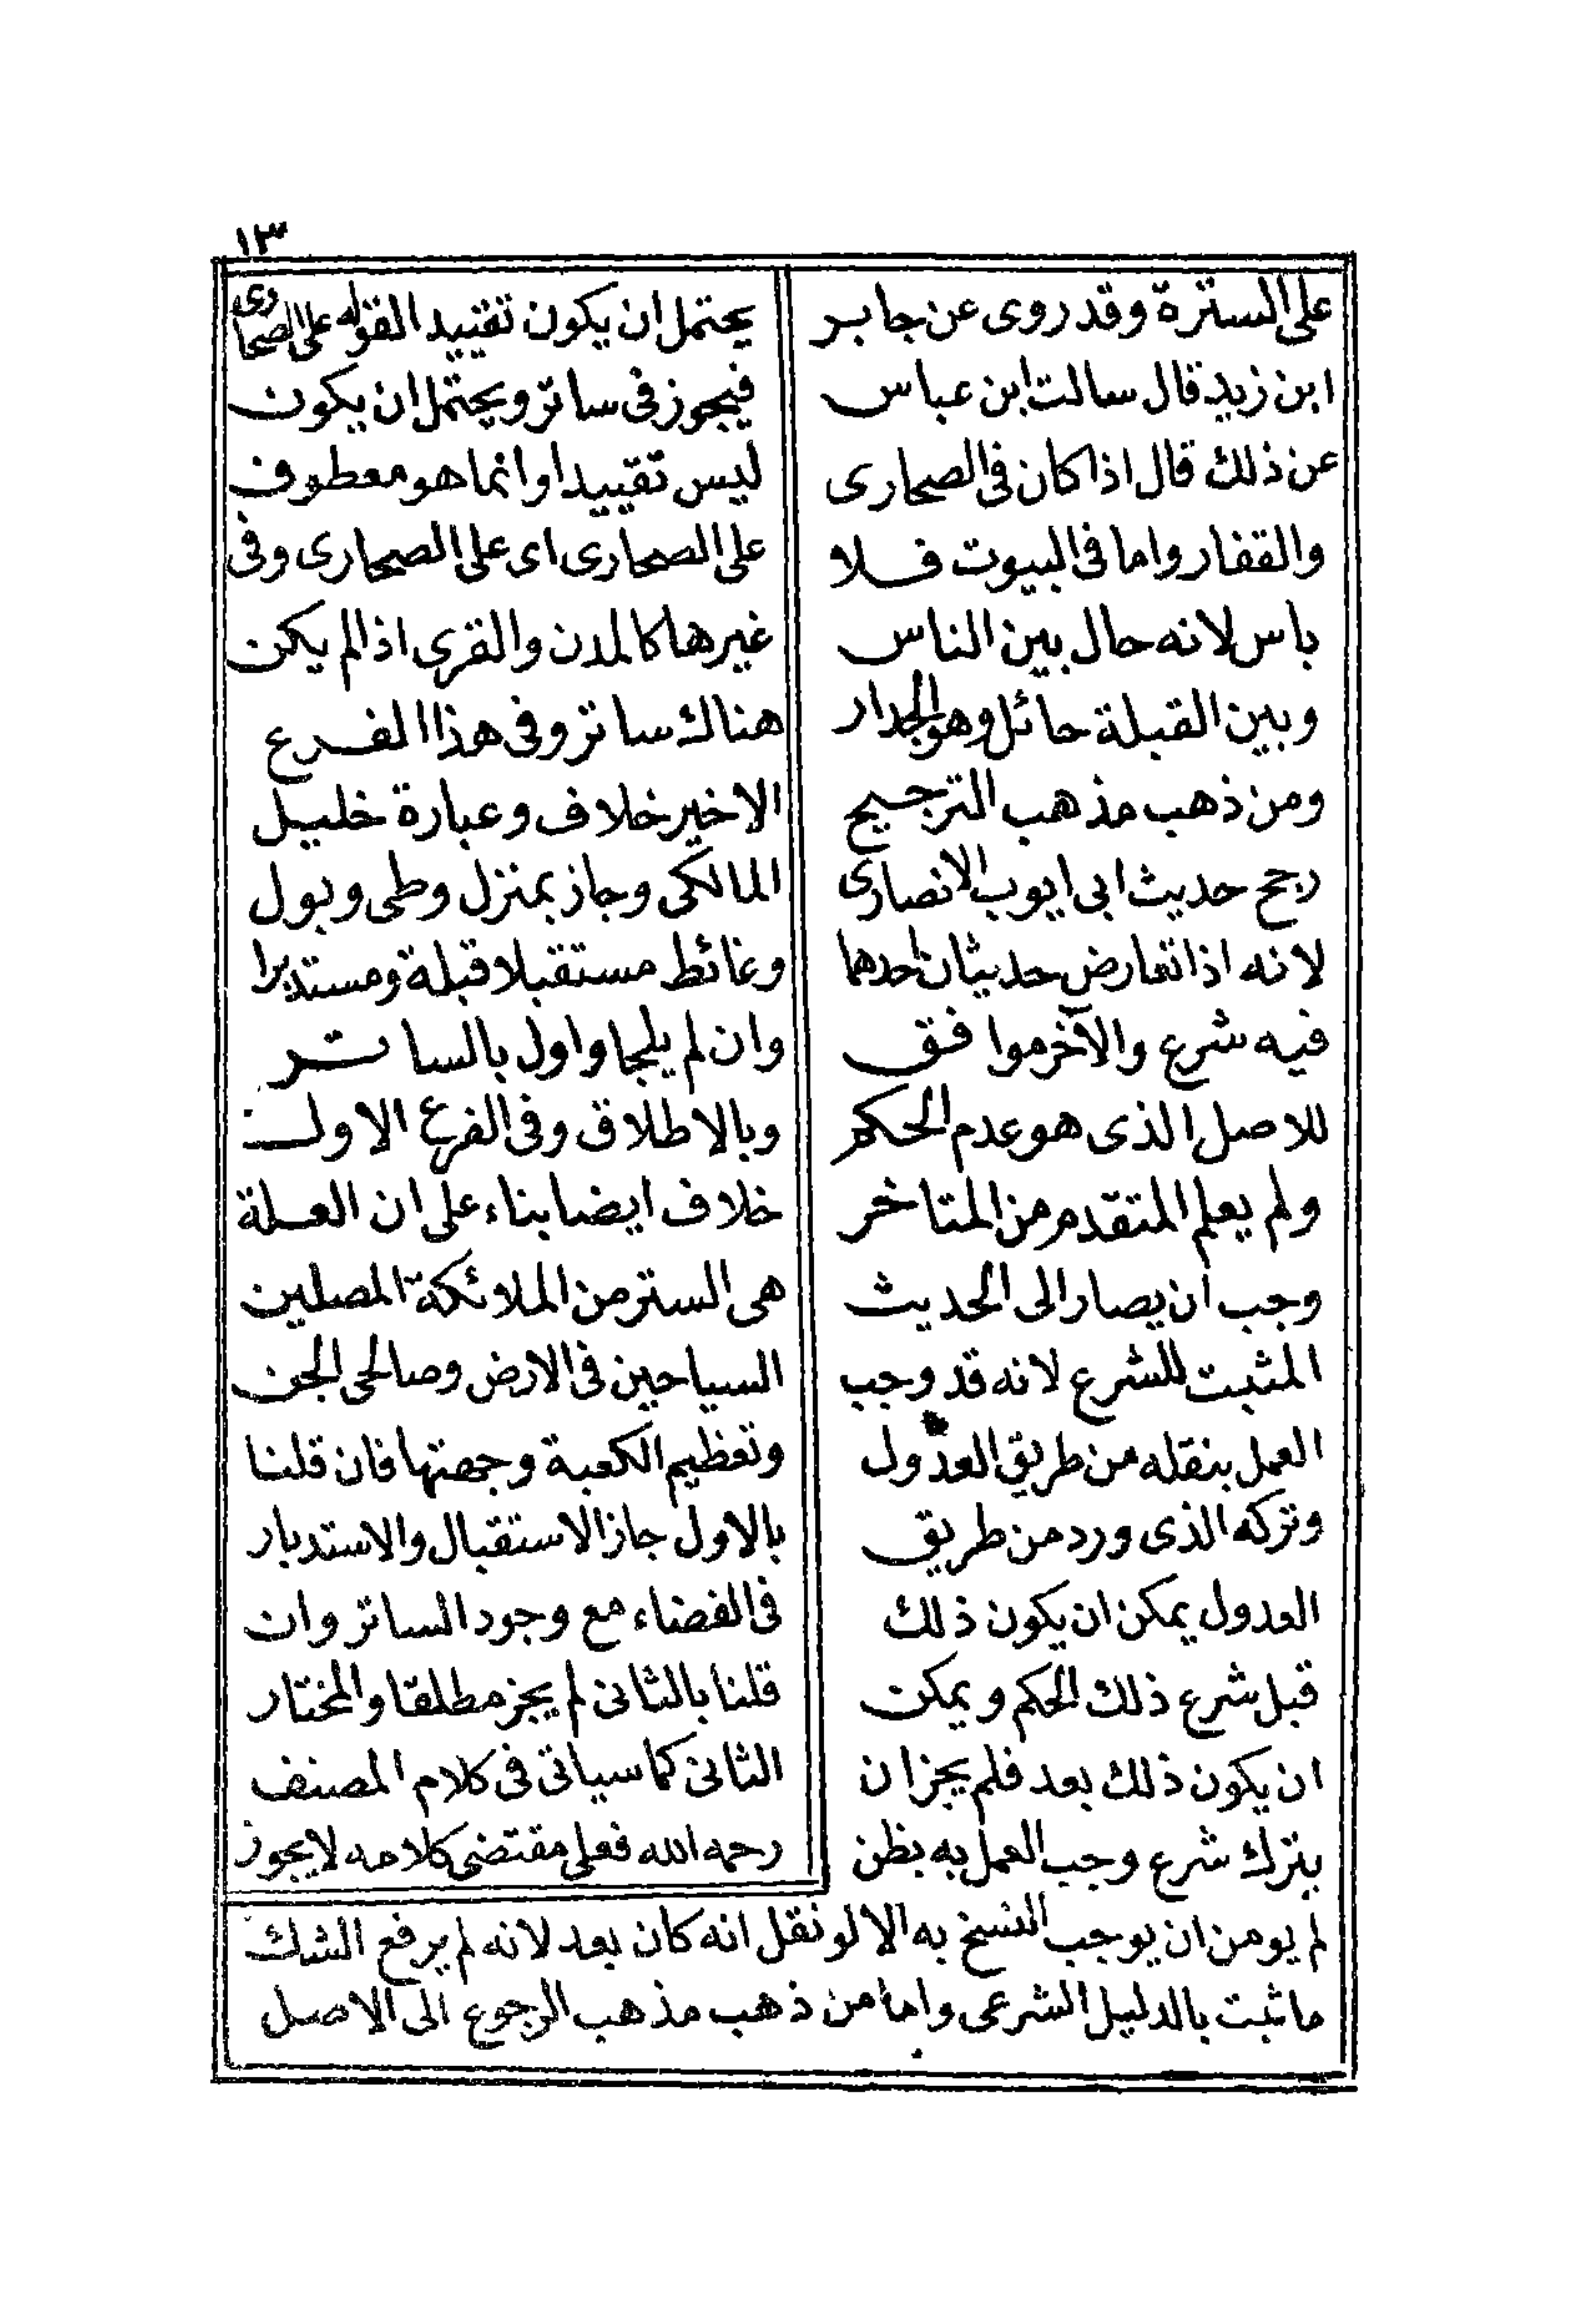 ١٣
على السترة وقد روى عن جابر
ابن زيد قال سالت ابن عباس
عن ذلك قال اذا كان فى الصحارى
والقفار واما فى البيوت فلا
باس لانه حال بين الناس
وبين القبلة حائل وهو الجدار
ومن ذهب مذهب الترجيح
رجح حديث ابى ايوب الانصارى
لانه اذا تعارض حديثان احدهما
فيه شرع والآخر موافق
للاصل الذى هو عدم الحكم
ولم يعلم المتقدم من المتاخر
وجب ان يصار الى الحديث
المثبت للشرع لانه قد وجب
العمل بنقله من طريق العدول
وتركه الذى ورد من طريق
العدول يمكن ان يكون ذلك
قبل شرع ذلك الحكم ويمكن
ان يكون ذلك بعد فلم يجز ان
يترك شرع وجب العمل به بظن
لم يومن ان يوجب النسخ به الا لو نقل انه كان بعد لانه لم يرفع الشك
ما ثبت بالدليل الشرعى واما من ذهب مذهب الرجوع الى الاصل
يحتمل ان يكون تقييد القوله على الصحارى
فيجوز فى ساتر ويحتمل ان يكون
ليس تقييدا وانما هو معطوف
على الصحارى اى على الصحارى وفى
غيرها كالمدن والقرى اذا لم يكن
هناك ساتر وفى هذا الفرع
الاخير خلاف وعبارة خليل
المالكى وجاز بمنزل وطى وبول
وغائط مستقبلا قبلة ومستدبرا
وان لم يلجا واول بالساتر
وبالاطلاق وفى الفرع الاول
خلاف ايضا بناء على ان العلة
هى الستر من الملائكة المصلين
السياحين فى الارض وصالحى الجن
وتعظيم الكعبة وجهتها فان قلنا
بالاول جاز الاستقبال والاستدبار
فى الفضاء مع وجود الساتر وان
قلنا بالثانى لم يجز مطلقا والمختار
الثانى كما سياتى فى كلام المصنف
رحمه الله فعلى مقتضى كلامه لا يجوز